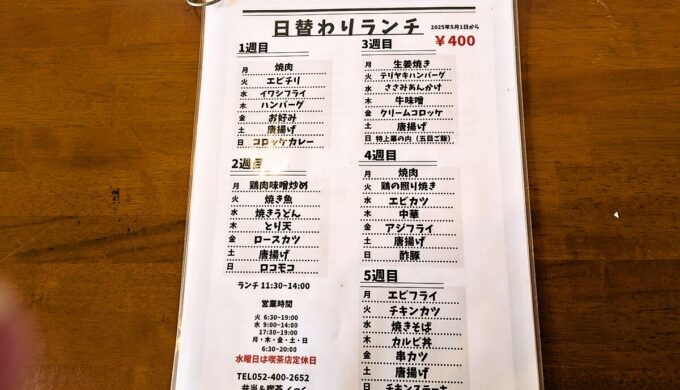 日替わりランチ 2025年5月1日から
¥400
1週目
月 焼肉
火 エビチリ
水 イワシフライ
木 ハンバーグ
金 お好み
土 唐揚げ
日 コロッケカレー
2週目
月 鶏肉味噌炒め
火 焼き魚
水 焼きうどん
木 とり天
金 ロースカツ
土 唐揚げ
日 ロコモコ
ランチ 11:30~14:00
営業時間
火 6:30~19:00
水 9:00~14:00
17:30~19:00
月・木・金・土・日
6:30~20:00
水曜日は喫茶店定休日
TEL052-400-2652
弁当&喫茶
3週目
月 生姜焼き
火 テリヤキハンバーグ
水 ささみあんかけ
木 牛味噌
金 クリームコロッケ
土 唐揚げ
日 特上幕の内(五目ご飯)
4週目
月 焼肉
火 鶏の照り焼き
水 エビカツ
木 中華
金 アジフライ
土 唐揚げ
日 酢豚
5週目
月 エビフライ
火 チキンカツ
水 焼きそば
木 カルビ丼
金 串カツ
土 唐揚げ
日 チキンステーキ